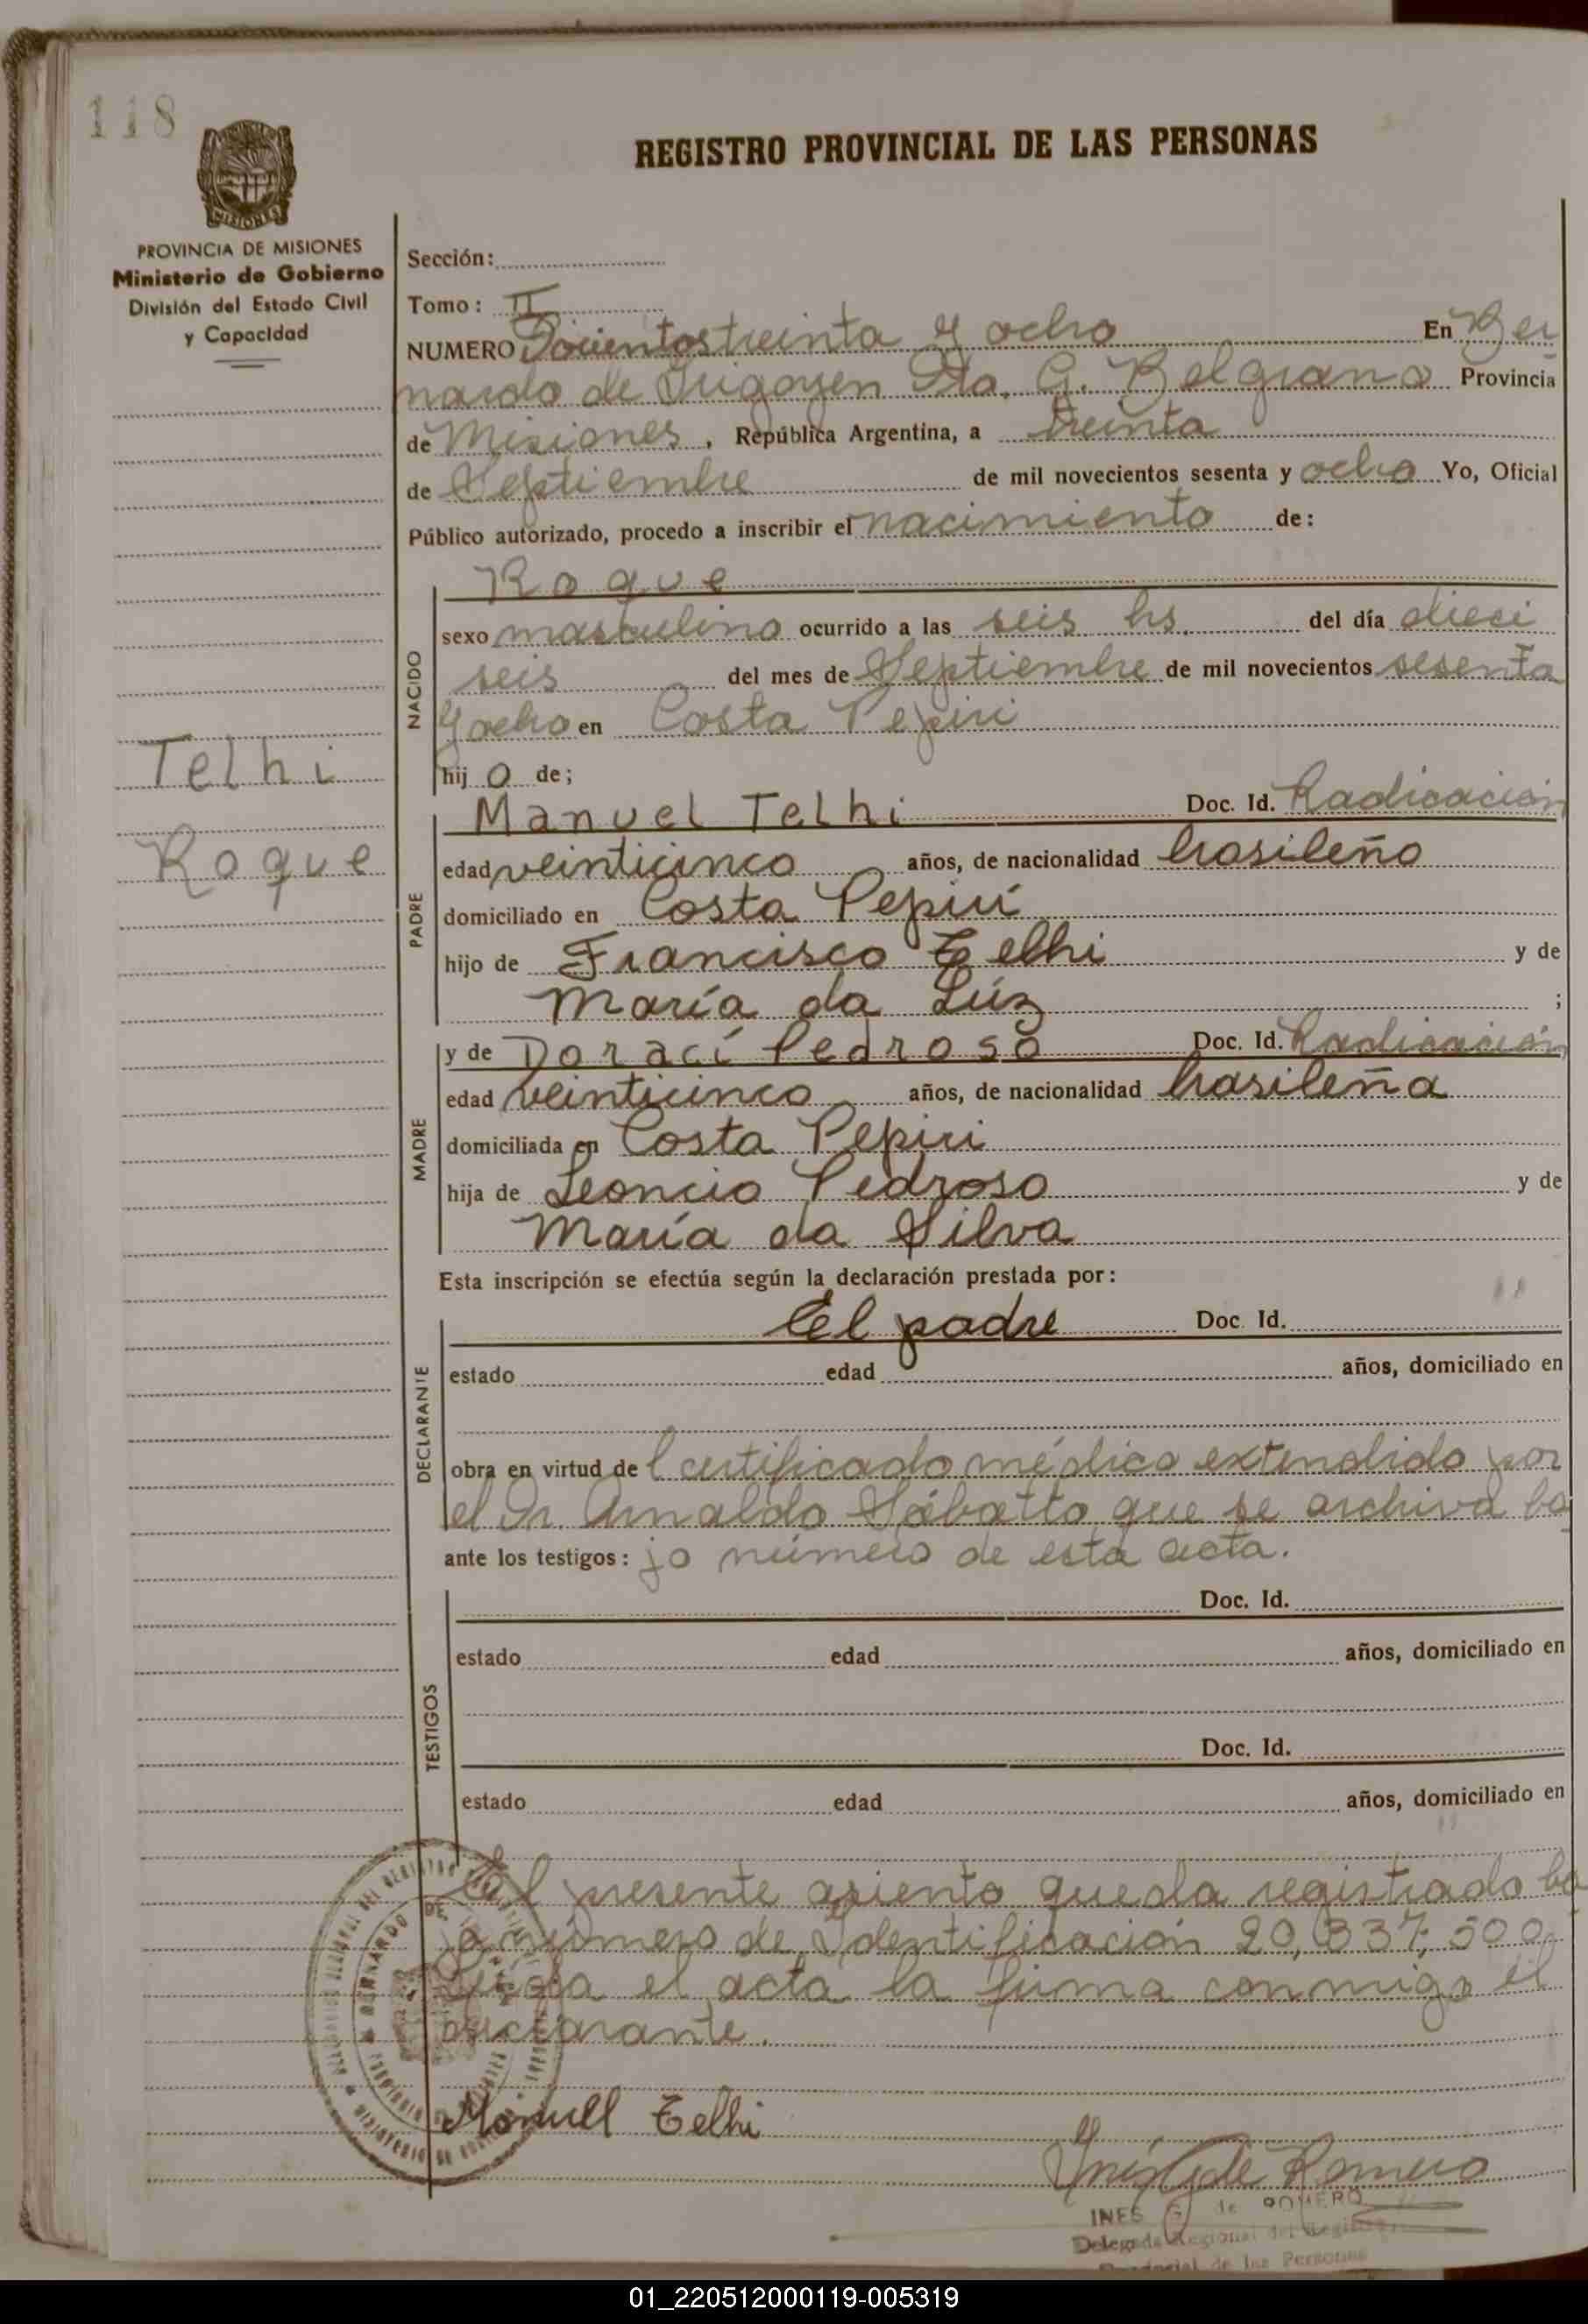 118
MISIONES
PROVINCIA DE MISIONES
Ministerio de Gobierno
División del Estado Civil
y Capacidad
Telhi
Roque
REGISTRO PROVINCIAL DE LAS PERSONAS
Sección:
Tomo: II
NUMERO Docientos treinta y ocho En Ber
nardo de Irigoyen Dto. G. Belgrano Provincia
de Misiones, República Argentina, a treinta
de Septiembre de mil novecientos sesenta y ocho Yo, Oficial
Público autorizado, procedo a inscribir el nacimiento de:
Roque
NACIDO
sexo masculino ocurrido a las seis hs. del día dieci
seis del mes de Septiembre de mil novecientos sesenta
y ocho en Costa Pepiri
hij o de;
Manuel Telhi Doc. Id. Radicación
PADRE
edad veinticinco años, de nacionalidad brasileño
domiciliado en Costa Pepirí
hijo de Francisco Telhi y de
María da Lúz ;
y de Doraci Pedroso Doc. Id. Radicación
MADRE
edad veinticinco años, de nacionalidad brasileña
domiciliada en Costa Pepiri
hija de Leoncio Pedroso y de
María da Silva
Esta inscripción se efectúa según la declaración prestada por:
El padre Doc. Id.
DECLARANTE
estado edad años, domiciliado en
obra en virtud de l certificado médico extendido por
el Dr. Arnaldo Sábatto que se archiva ba
ante los testigos: jo número de esta acta.
TESTIGOS
Doc. Id.
estado edad años, domiciliado en
Doc. Id.
estado edad años, domiciliado en
El presente asiento queda registrado ba
jo número de Identificación 20,337,500
Leída el acta la firma conmigo el
declarante.
Manuell Telhi
Inés G de Romero
INES G de ROMERO
Delegada Regional del Registro
Provincial de las Personas
01_220512000119-005319